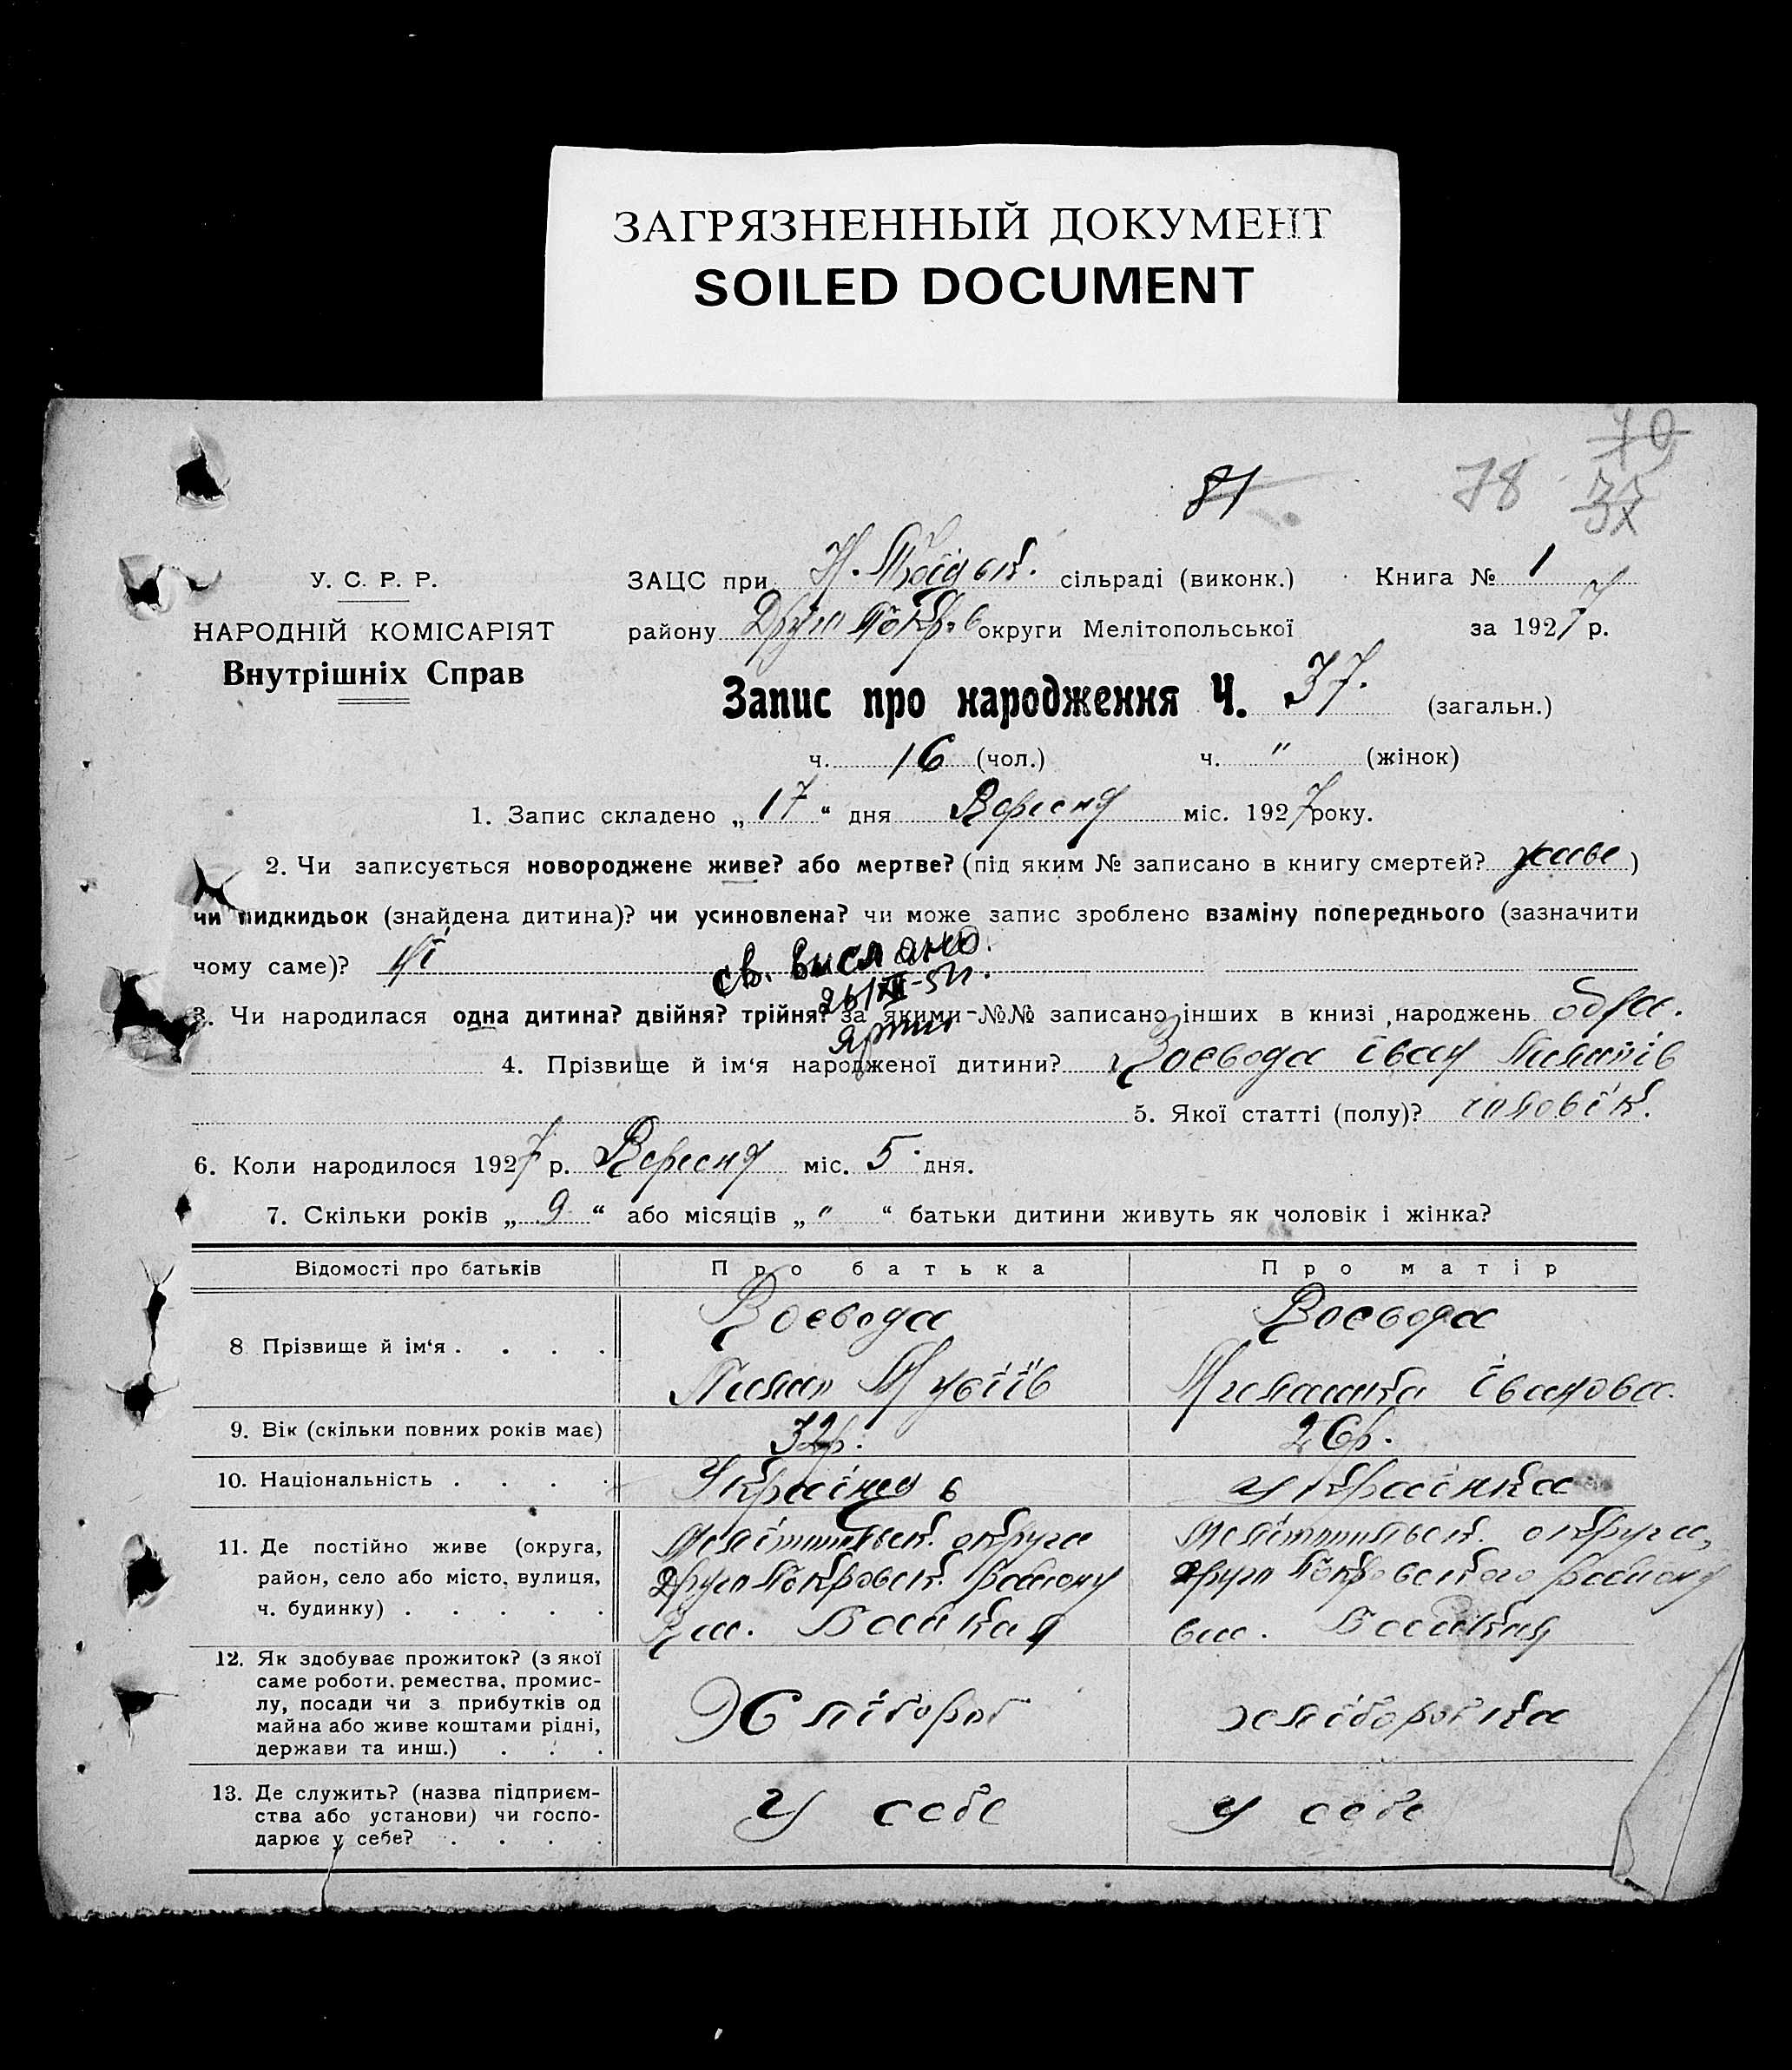 ЗАГРЯЗНЕННЫЙ ДОКУМЕНТ
SOILED DOCUMENT
70
81 78
У. С. Р. Р.
НАРОДНІЙ КОМІСАРІЯТ
Внутрішніх Справ
ЗАЦС при Н. сільраді (виконк.) Книга № 1
району Друго Покр.в округи Мелітопольської за 1927 р.
Запис про народження Ч. 37. (загальн.)
ч. 16 (чол.) ч. " (жінок)
1. Запис складено „ 17 “ дня Вересня міс. 1927 року.
2. Чи записується новороджене живе? або мертве? (під яким № записано в книгу смертей? живе )
чи підкидьок (знайдена дитина)? чи усиновлена? чи може запис зроблено взаміну попереднього (зазначити
чому саме)? Ні
св. выслано.
3. Чи народилася одна дитина? двійня? трійня? за якими №№ записано інших в книзі народжень одна.
4. Прізвище й ім'я народженої дитини? Воєвода Іван Пилипів
5. Якої статті (полу)? чоловік.
6. Коли народилося 1927 р. Вересня міс. 5 дня.
7. Скільки років „ 9 “ або місяців „ " “ батьки дитини живуть як чоловік і жінка?
Відомості про батьків Про батька Про матір
8 Прізвище й ім'я . . . . Воєвода Пилип Мусіїв Воєвода Івановна.
9. Вік (скільки повних років має) 32р. 26р.
10. Національність . . . . Українец Українка
11. Де постійно живе (округа, район, село або місто, вулиця, ч. будинку) . . . . . Мелітопільськ. округа Друго Покровськ. району Мелітопільськ. округа, Друго Покровського району
12. Як здобуває прожиток? (з якої саме роботи, ремества, промислу, посади чи з прибутків од майна або живе коштами рідні, держави та инш.) . . . Хлібороб хліборобка
13. Де служить? (назва підприємства або установи) чи господарює у себе? . . . . У себе У себе